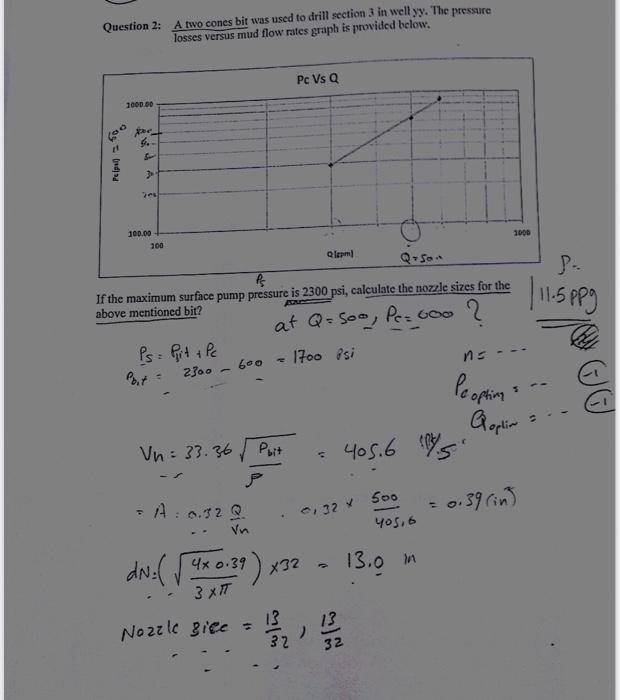 Question 2: A two cones bit was used to drill section 3 in well yy. The pressure
losses versus mud flow rates graph is provided below.
Pc Vs Q
1000.00
Pc(psi) = 600
100.00
100
1000
Q(gpm)
Q=500
Ps
If the maximum surface pump pressure is 2300 psi, calculate the nozzle sizes for the
above mentioned bit?
11.5 ppg
at Q = 500, Pc = 600 ?
Ps = Pbit + Pc
Pbit = 2300 - 600 = 1700 psi
n = ---
Pc optim = --
-1
Q optim = --
-1
Vn = 33.36 √ Pbit / ρ = 405.6 ft/s
= A = 0.32 Q / Vn . 0,32 × 500 / 405,6 = 0.39 (in²)
dN = ( √ 4 x 0.39 / 3 x π ) x 32 = 13.0 in
Nozzle Size = 13/32 , 13/32